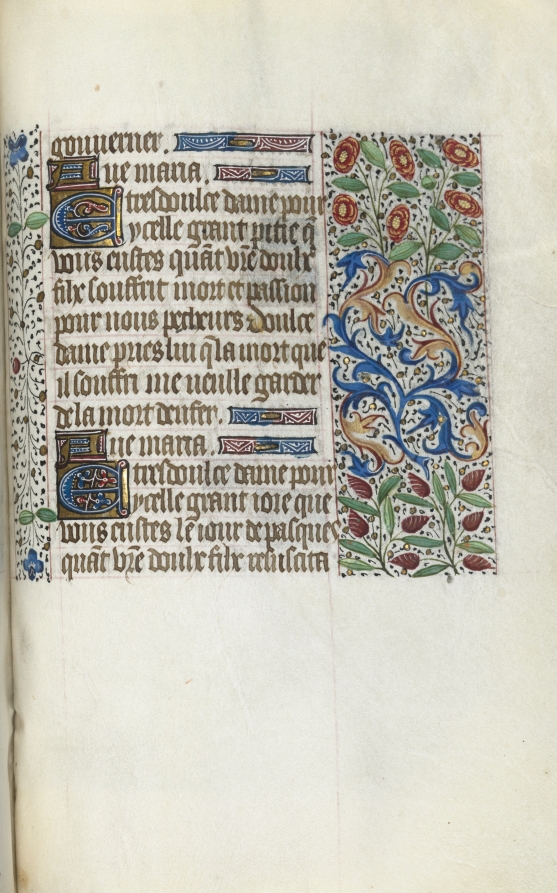 gouuerner.
Aue maria.
E tresdoulce dame pour
ycelle grant pitie q̄
vous eustes quāt vr̄e doulx
filx souffrit mort et passion
pour nous pecheurs doulce
dame pries lui q̄ la mort que
il souffri me veulle garder
de la mort denfer.
Aue maria.
E tresdoulce dame pour
ycelle grant ioie que
vous eustes le iour de pasques
quāt vr̄e doulx filx resuscita